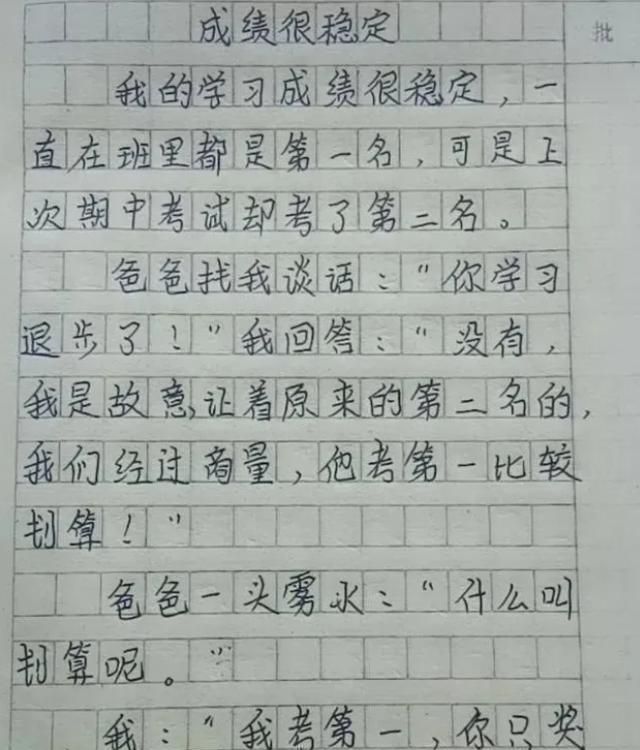 成绩很稳定
批
我的学习成绩很稳定，一
直在班里都是第一名，可是上
次期中考试却考了第二名。
爸爸找我谈话：“你学习
退步了！”我回答：“没有，
我是故意让着原来的第二名的，
我们经过商量，他考第一比较
划算！”
爸爸一头雾水：“什么叫
划算呢。”
我：“我考第一，你只奖